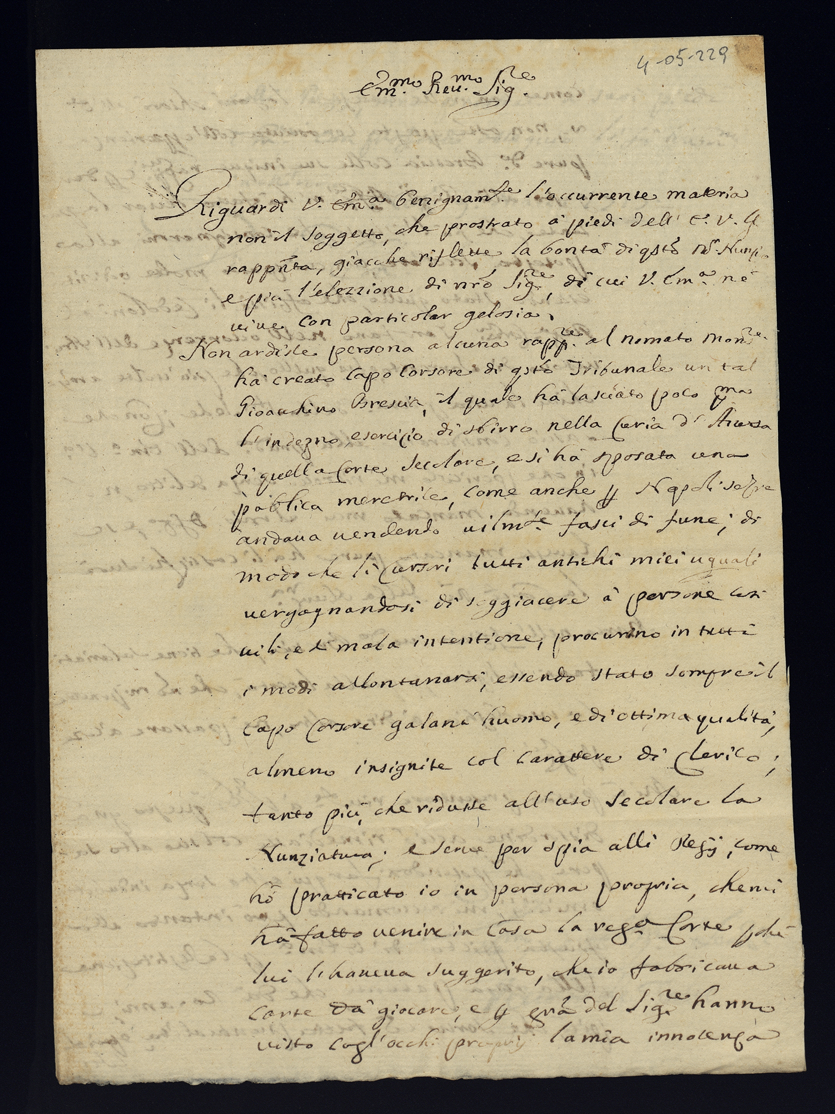 4-05-229
Em.mo Reu.mo Sig.re
Riguardi V. Em.a benignam.te l'occurrente materia
non il soggetto, che prostrato à piedi dell' E. V. il
rappñta, giacche riflette la bontà di qsto Nunzi-
e più l'elezzione di nrõ Sig.re, di cui V. Em.a nè
uiue con particolar gelosia.
Non ardisce persona alcuna rapp.re al nomato Mon.re
hà creato Capo Corsore di qsto Tribunale un tal
Gioanhino Brescia, il quale hà lasciato poco pma
l'indegno esercizio di sbirro nella Curia d' Auersa
di quella Corte Secolare, e si hà sposata una
publica meretrice, come anche p Napoli sempre
andaua uendendo uilm.te fasci di fune; di
modo che li Cursori tutti antichi miei uguali
uergognandosi di soggiacere à persone così
uili, e di mala intentione, procurino in tutti
i modi allontanarsi, essendo stato sempre il
Capo Corsore galant'huomo, e di ottima qualità,
almeno insignite col Carattere di Clerico;
tanto più, che ridusse all'uso Secolare la
Nunziatura; e serue per spia alli Regij, come
hò pratticato io in persona propria, che mi
hà fatto uenire in Casa la reg.a Corte pche
lui l'haueua suggerito, che io fabricaua
Carte dà giocare, e p gra del Sig.re hanno
uisto cogl'occhi proprij la mia innocenza